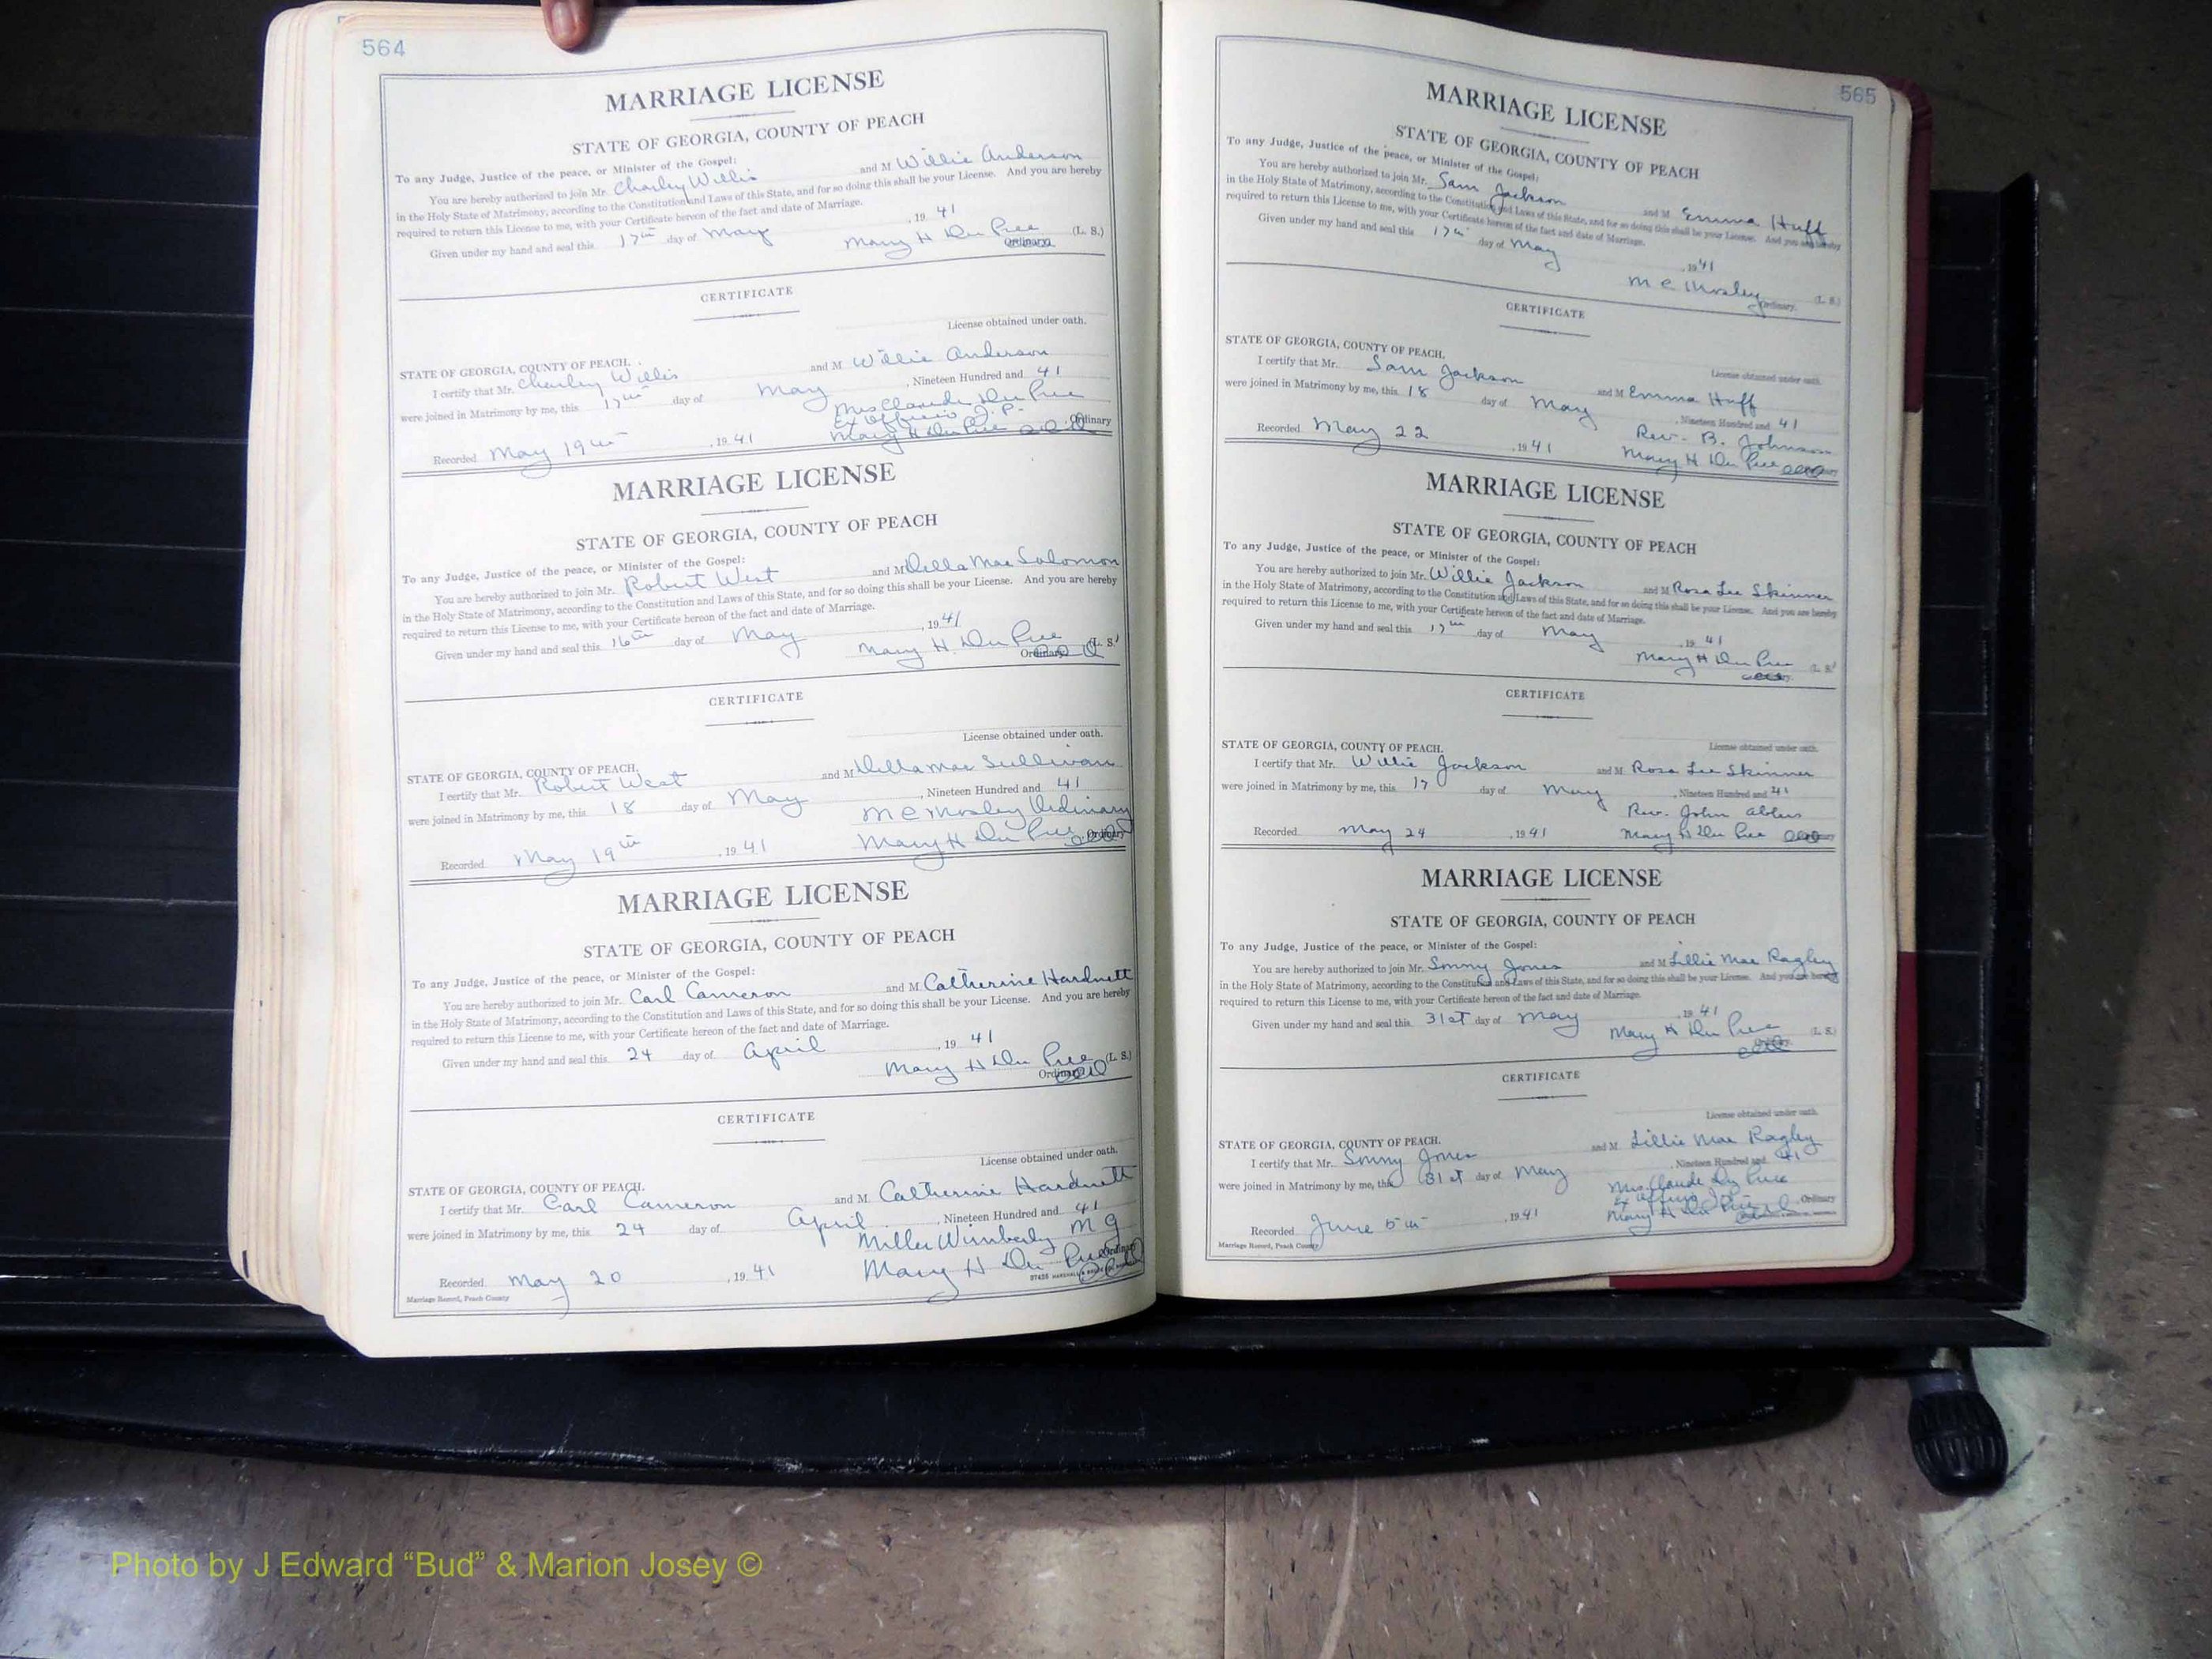 564
MARRIAGE LICENSE
STATE OF GEORGIA, COUNTY OF PEACH
To any Judge, Justice of the peace, or Minister of the Gospel:
You are hereby authorized to join Mr. Charley Willis and M Willie Anderson
in the Holy State of Matrimony, according to the Constitution and Laws of this State, and for so doing this shall be your License. And you are hereby
required to return this License to me, with your Certificate hereon of the fact and date of Marriage.
Given under my hand and seal this 17th day of May, 1941
Mary H Du Pree (L. S.)
Ordinary
CERTIFICATE
License obtained under oath.
STATE OF GEORGIA, COUNTY OF PEACH.
I certify that Mr. Charley Willis and M Willie Anderson
were joined in Matrimony by me, this 17th day of May, Nineteen Hundred and 41
Mrs Claude Du Pree
Ex Officio J. P.
Recorded May 19th, 1941 Mary H Du Pree Ordinary
MARRIAGE LICENSE
STATE OF GEORGIA, COUNTY OF PEACH
To any Judge, Justice of the peace, or Minister of the Gospel:
You are hereby authorized to join Mr. Robert West and M Della Mae Solomon
in the Holy State of Matrimony, according to the Constitution and Laws of this State, and for so doing this shall be your License. And you are hereby
required to return this License to me, with your Certificate hereon of the fact and date of Marriage.
Given under my hand and seal this 16th day of May, 1941
Mary H. Du Pree (L. S.)
Ordinary
CERTIFICATE
License obtained under oath.
STATE OF GEORGIA, COUNTY OF PEACH.
I certify that Mr. Robert West and M Della Mae Sullivan
were joined in Matrimony by me, this 18 day of May, Nineteen Hundred and 41
M C Mosley Ordinary
Recorded May 19th, 1941 Mary H Du Pree Ordinary
MARRIAGE LICENSE
STATE OF GEORGIA, COUNTY OF PEACH
To any Judge, Justice of the peace, or Minister of the Gospel:
You are hereby authorized to join Mr. Carl Cameron and M Catherine Hardnett
in the Holy State of Matrimony, according to the Constitution and Laws of this State, and for so doing this shall be your License. And you are hereby
required to return this License to me, with your Certificate hereon of the fact and date of Marriage.
Given under my hand and seal this 24 day of April, 1941
Mary H Du Pree (L. S.)
Ordinary
CERTIFICATE
License obtained under oath.
STATE OF GEORGIA, COUNTY OF PEACH.
I certify that Mr. Carl Cameron and M Catherine Hardnett
were joined in Matrimony by me, this 24 day of April, Nineteen Hundred and 41
Miller Wimberly M G
Recorded May 20, 1941 Mary H Du Pree Ordinary
Marriage Record, Peach County
565
MARRIAGE LICENSE
STATE OF GEORGIA, COUNTY OF PEACH
To any Judge, Justice of the peace, or Minister of the Gospel:
You are hereby authorized to join Mr. Sam Jackson and M Emma Huff
in the Holy State of Matrimony, according to the Constitution and Laws of this State, and for so doing this shall be your License. And you are hereby
required to return this License to me, with your Certificate hereon of the fact and date of Marriage.
Given under my hand and seal this 17th day of May, 1941
M C Mosley (L. S.)
Ordinary.
CERTIFICATE
License obtained under oath.
STATE OF GEORGIA, COUNTY OF PEACH.
I certify that Mr. Sam Jackson and M Emma Huff
were joined in Matrimony by me, this 18 day of May, Nineteen Hundred and 41
Rev. B. Johnson
Recorded May 22, 1941 Mary H Du Pree
MARRIAGE LICENSE
STATE OF GEORGIA, COUNTY OF PEACH
To any Judge, Justice of the peace, or Minister of the Gospel:
You are hereby authorized to join Mr. Willie Jackson and M Rosa Lee Skinner
in the Holy State of Matrimony, according to the Constitution and Laws of this State, and for so doing this shall be your License. And you are hereby
required to return this License to me, with your Certificate hereon of the fact and date of Marriage.
Given under my hand and seal this 17th day of May, 1941
Mary H Du Pree (L. S.)
CERTIFICATE
License obtained under oath.
STATE OF GEORGIA, COUNTY OF PEACH.
I certify that Mr. Willie Jackson and M Rosa Lee Skinner
were joined in Matrimony by me, this 17 day of May, Nineteen Hundred and 41
Rev. John
Recorded May 24, 1941 Mary H Du Pree
MARRIAGE LICENSE
STATE OF GEORGIA, COUNTY OF PEACH
To any Judge, Justice of the peace, or Minister of the Gospel:
You are hereby authorized to join Mr. Sonny Jones and M Lillie Mae Ragley
in the Holy State of Matrimony, according to the Constitution and Laws of this State, and for so doing this shall be your License. And you are hereby
required to return this License to me, with your Certificate hereon of the fact and date of Marriage.
Given under my hand and seal this 31st day of May, 1941
Mary H Du Pree (L. S.)
CERTIFICATE
License obtained under oath.
STATE OF GEORGIA, COUNTY OF PEACH.
I certify that Mr. Sonny Jones and M Lillie Mae Ragley
were joined in Matrimony by me, this 31st day of May, Nineteen Hundred and 41
Mrs. Claude Du Pree
Ex Officio J. P.
Recorded June 5th, 1941 Mary H Du Pree Ordinary
Marriage Record, Peach County
Photo by J Edward “Bud” & Marion Josey ©